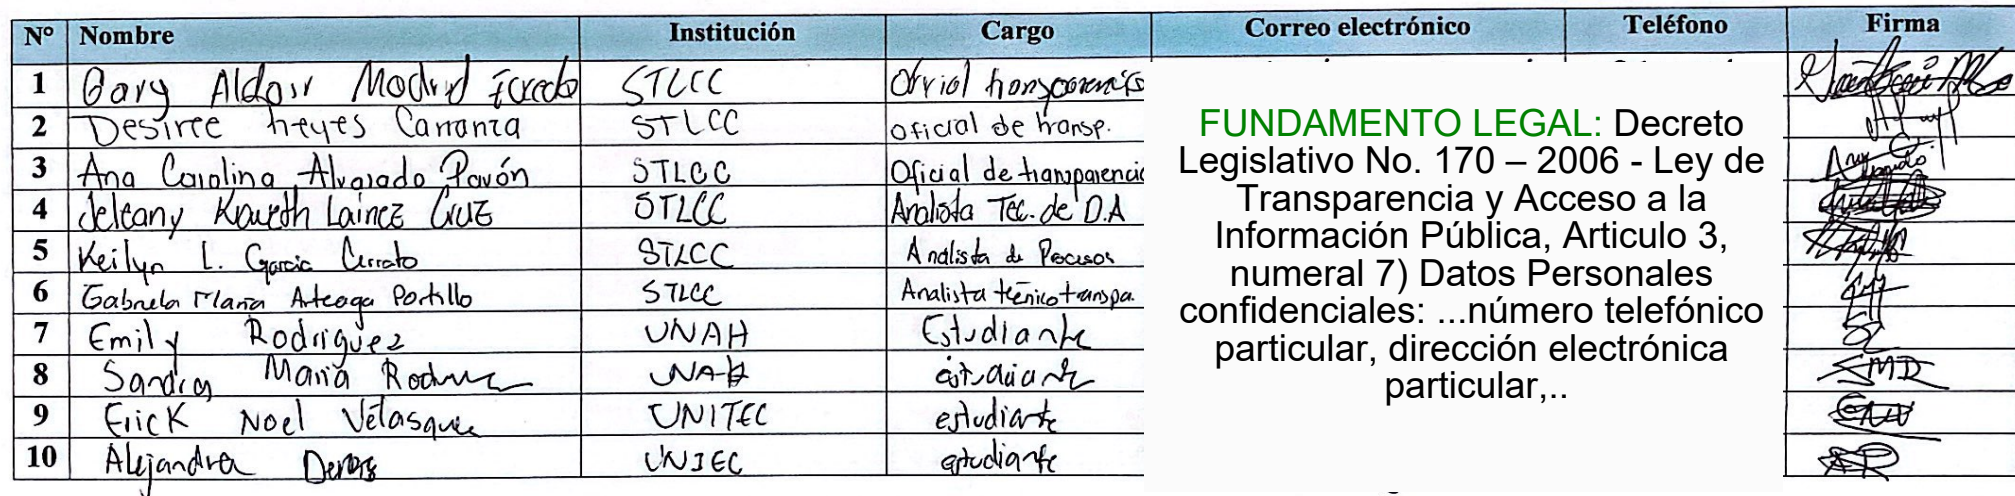 N° Nombre Institución Cargo Correo electrónico Teléfono Firma
1 Gary Aldair Madrid STLCC Oficial transparencia
2 Desiree Reyes Carranza STLCC oficial de transp.
3 Ana Carolina Alvarado Pavón STLCC Oficial de transparencia
4 Jeleany Kaweth Lainez Cruz STLCC Analista Tec. de D.A
5 Keilyn L. Garcia Cerrato STLCC Analista de Procesos
6 Gabriela Maria Arteaga Portillo STLCC Analista técnico transpa.
7 Emily Rodriguez UNAH Estudiante
8 Sandra Maria UNAH estudiante
9 Erick Noel Velasquez UNITEC estudiante
10 Alejandra UNIEC estudiante
FUNDAMENTO LEGAL: Decreto
Legislativo No. 170 – 2006 - Ley de
Transparencia y Acceso a la
Información Pública, Articulo 3,
numeral 7) Datos Personales
confidenciales: ...número telefónico
particular, dirección electrónica
particular,..